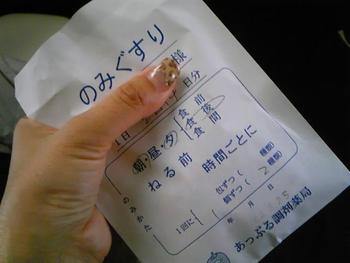 のみぐすり
様
1日 日分
食前
食後
食間
朝・昼・夕
ねる前 時間ごとに
のみかた
1回に
包ずつ( 種類)
個ずつ( 2 種類)
年 月 日
あっぷる調剤薬局